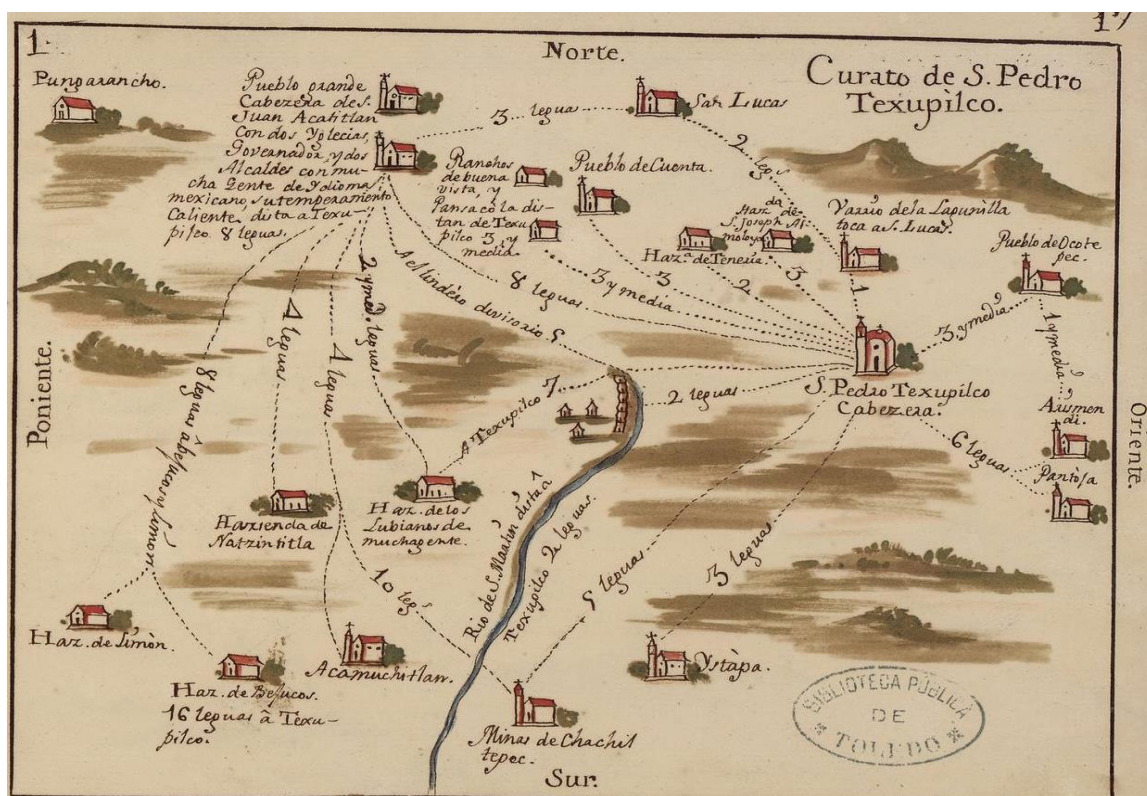 1.
Norte.
Curato de S. Pedro
Texupilco.
Pungarancho.
Pueblo grande
Cabezera de S.
Juan Acatitlan
Con dos Yglecias,
Governador, y dos
Alcaldes con mu-
cha Gente de Ydioma
mexicano, su temperamento
Caliente dista a Texu-
pilco 8 leguas.
3 leguas
San Lucas
2 leg.s
Ranchos
de buena
vista, y
Pansacola dis-
tan de Texu-
pilco 3 y
media.
Pueblo de Cuenta.
Haz.da de
S. Joseph Al-
moloya
Haz.a de Teneria.
Varrio de la Lagunilla
toca a S. Lucas.
Pueblo de Ocote
pec.
Al lindero divisorio 5
8 leguas
3 y media.
3
2
3
1
3 y media
1 y media
S. Pedro Texupilco
Cabezera.
Poniente.
Oriente.
8 leguas â besucos y Limon
4 leguas
4 leguas
2 y med. leguas
A Texupilco 7.
2 leguas
6 leguas
Ausmen
di.
Pantoja
Hazienda de
Natzintitla
Haz. de los
Lubianos de
mucha gente.
10 leg.s
Rio de S. Martin dista â
Texupilco 2 leguas.
5 leguas
3 leguas
Haz. de Limòn.
Haz. de Besucos.
16 leguas â Texu-
pilco.
Acamuchitlan.
Minas de Chachil
tepec.
Ystàpa.
Sur.
BIBLIOTECA PÚBLICA
DE
TOLEDO